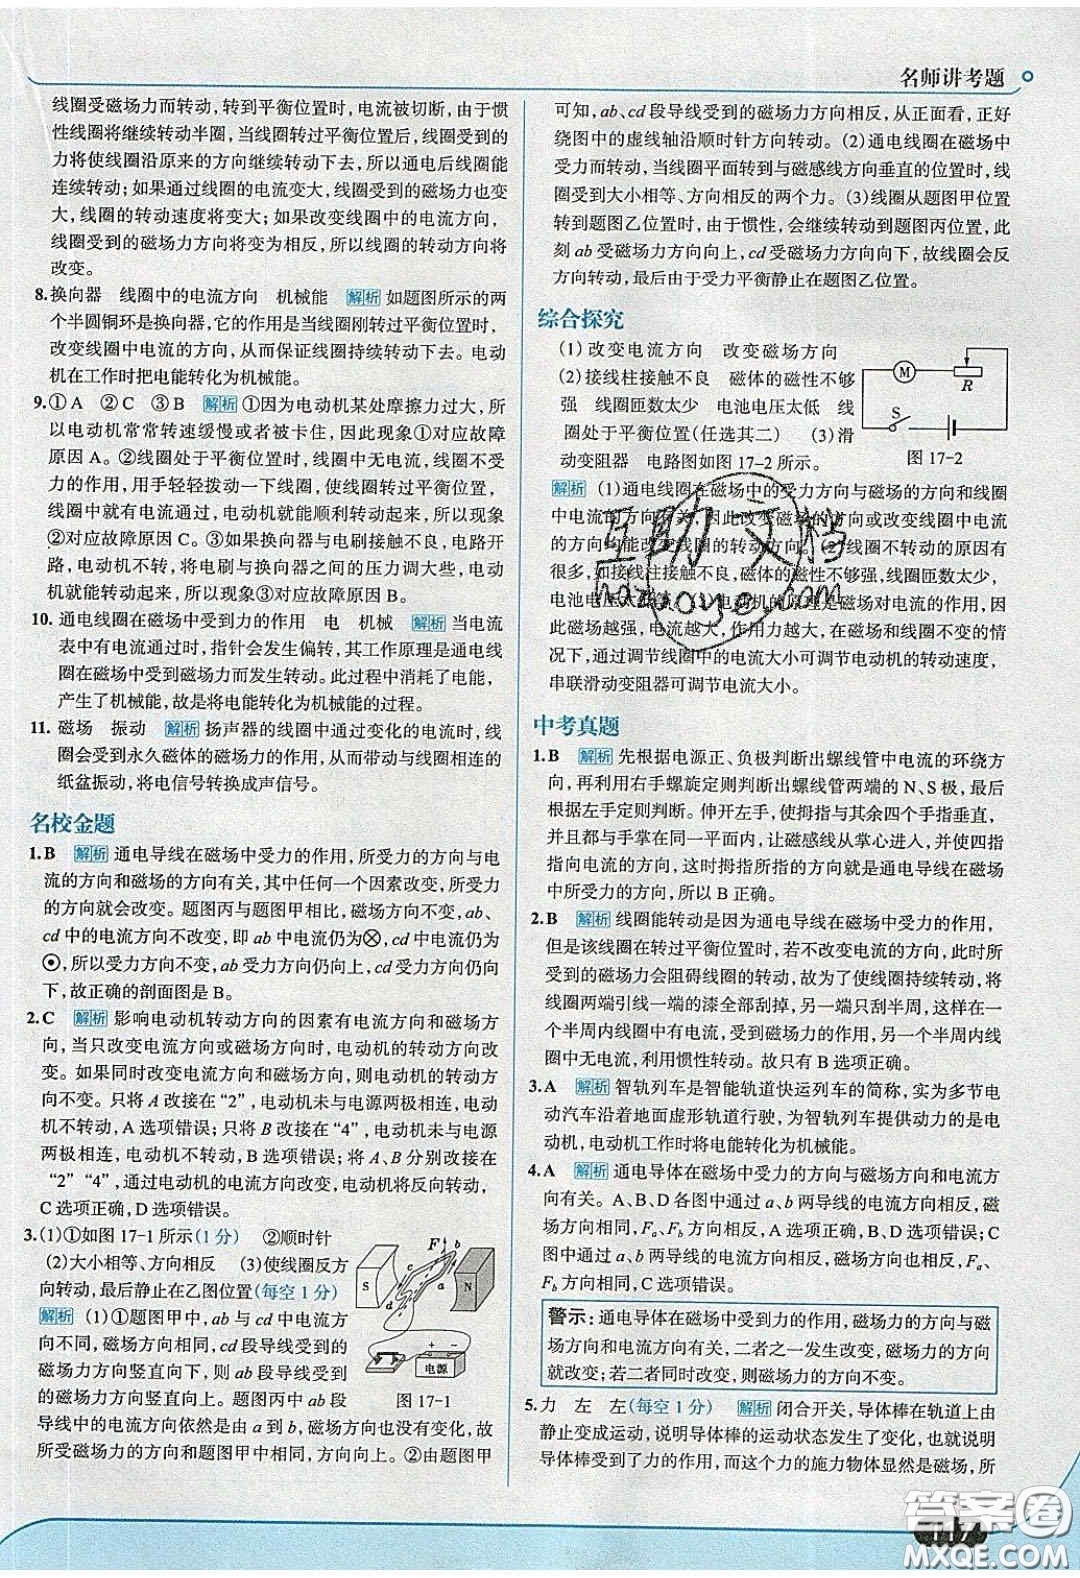 名师讲考题
线圈受磁场力而转动，转到平衡位置时，电流被切断，由于惯
性线圈将继续转动半圈，当线圈转过平衡位置后，线圈受到的
力将使线圈沿原来的方向继续转动下去，所以通电后线圈能
连续转动；如果通过线圈的电流变大，线圈受到的磁场力也变
大，线圈的转动速度将变大；如果改变线圈中的电流方向，
线圈受到的磁场力方向将变为相反，所以线圈的转动方向将
改变。
8.换向器　线圈中的电流方向　机械能　解析 如题图所示的两
个半圆铜环是换向器，它的作用是当线圈刚转过平衡位置时，
改变线圈中电流的方向，从而保证线圈持续转动下去。电动
机在工作时把电能转化为机械能。
9.①A　②C　③B　解析 ①因为电动机某处摩擦力过大，所
以电动机常常转速缓慢或者被卡住，因此现象①对应故障
原因A。②线圈处于平衡位置时，线圈中无电流，线圈不受
力的作用，用手轻轻拨动一下线圈，使线圈转过平衡位置，
线圈中就有电流通过，电动机就能顺利转动起来，所以现象
②对应故障原因C。③如果换向器与电刷接触不良，电路开
路，电动机不转，将电刷与换向器之间的压力调大些，电动机
就能转动起来，所以现象③对应故障原因B。
10.通电线圈在磁场中受到力的作用　电　机械　解析 当电流
表中有电流通过时，指针会发生偏转，其工作原理是通电线
圈在磁场中受到磁场力而发生转动。此过程中消耗了电能，
产生了机械能，故是将电能转化为机械能的过程。
11.磁场　振动　解析 扬声器的线圈中通过变化的电流时，线
圈会受到永久磁体的磁场力的作用，从而带动与线圈相连的
纸盆振动，将电信号转换成声信号。
名校金题
1.B　解析 通电导线在磁场中受力的作用，所受力的方向与电
流的方向和磁场的方向有关，其中任何一个因素改变，所受力
的方向就会改变。题图丙与题图甲相比，磁场方向不变，ab、
cd中的电流方向不改变，即ab中电流仍为⊗，cd中电流仍为
⊙，所以受力方向不变，ab受力方向仍向上，cd受力方向仍向
下，故正确的剖面图是B。
2.C　解析 影响电动机转动方向的因素有电流方向和磁场方
向，当只改变电流方向或磁场方向时，电动机的转动方向改
变。如果同时改变电流方向和磁场方向，则电动机的转动方
向不变。只将A改接在“2”，电动机未与电源两极相连，电动
机不转动，A选项错误；只将B改接在“4”，电动机未与电源
两极相连，电动机不转动，B选项错误；将A、B分别改接在
“2”“4”，通过电动机的电流方向改变，电动机将反向转动，
C选项正确，D选项错误。
3.(1)①如图17-1所示(1分)　②顺时针
(2)大小相等、方向相反　(3)使线圈反方
向转动，最后静止在乙图位置(每空1分)
解析 (1)①题图甲中，ab与cd中电流方
向不同，磁场方向相同，cd段导线受到的
磁场力方向竖直向下，则ab段导线受到
的磁场力方向竖直向上。题图丙中ab段
导线中的电流方向依然是由a到b，磁场方向也没有变化，故
所受磁场力的方向和题图甲中相同，方向向上。②由题图甲
F b
S
c
a
N
d
电源
图17-1
可知，ab、cd段导线受到的磁场力方向相反，从正面看，正好
绕图中的虚线轴沿顺时针方向转动。(2)通电线圈在磁场中
受力而转动，当线圈平面转到与磁感线方向垂直的位置时，线
圈受到大小相等、方向相反的两个力。(3)线圈从题图甲位置
转到题图乙位置时，由于惯性，会继续转动到题图丙位置，此
刻ab受磁场力方向向上，cd受磁场力方向向下，故线圈会反
方向转动，最后由于受力平衡静止在题图乙位置。
综合探究
(1)改变电流方向　改变磁场方向
(2)接线柱接触不良　磁体的磁性不够
强　线圈匝数太少　电池电压太低　线
圈处于平衡位置(任选其二)　(3)滑
动变阻器　电路图如图17-2所示。
M
R
S
图17-2
解析 (1)通电线圈在磁场中的受力方向与磁场的方向和线圈
中电流的方向有关，因此改变磁场的方向或改变线圈中电流
的方向可能改变线圈的转动方向。(2)线圈不转动的原因有
很多，如接线柱接触不良、磁体的磁性不够强、线圈匝数太少、
电池电压太低等。(3)电动机的原理是磁场对电流的作用，因
此磁场越强，电流越大，作用力越大，在磁场和线圈不变的情
况下，通过调节线圈中的电流大小可调节电动机的转动速度，
串联滑动变阻器可调节电流大小。
中考真题
1.B　解析 先根据电源正、负极判断出螺线管中电流的环绕方
向，再利用右手螺旋定则判断出螺线管两端的N、S极，最后
根据左手定则判断。伸开左手，使拇指与其余四个手指垂直，
并且都与手掌在同一平面内，让磁感线从掌心进人，并使四指
指向电流的方向，这时拇指所指的方向就是通电导线在磁场
中所受力的方向，所以B正确。
2.B　解析 线圈能转动是因为通电导线在磁场中受力的作用，
但是该线圈在转过平衡位置时，若不改变电流的方向，此时所
受到的磁场力会阻碍线圈的转动，故为了使线圈持续转动，将
线圈两端引线一端的漆全部刮掉，另一端只刮半周，这样在一
个半周内线圈中有电流，受到磁场力的作用，另一个半周内线
圈中无电流，利用惯性转动。故只有B选项正确。
3.A　解析 智轨列车是智能轨道快运列车的简称，实为多节电
动汽车沿着地面虚形轨道行驶，为智轨列车提供动力的是电
动机，电动机工作时将电能转化为机械能。
4.A　解析 通电导体在磁场中受力的方向与磁场方向和电流方
向有关。A、B、D各图中通过a、b两导线的电流方向相反，磁
场方向相同，Fa、Fb方向相反，A选项正确，B、D选项错误；C
图中通过a、b两导线的电流方向相反，磁场方向也相反，Fa、
Fb方向相同，C选项错误。
警示：通电导体在磁场中受到力的作用，磁场力的方向与磁
场方向和电流方向有关，二者之一发生改变，磁场力的方向
就改变；若二者同时改变，则磁场力的方向不变。
5.力　左　左(每空1分)　解析 闭合开关，导体棒在轨道上由
静止变成运动，说明导体棒的运动状态发生了变化，也就说明
导体棒受到了力的作用，而这个力的施力物体显然是磁场，所
互助文档
hdzuoye.com
答案圈
MXQE.COM
117